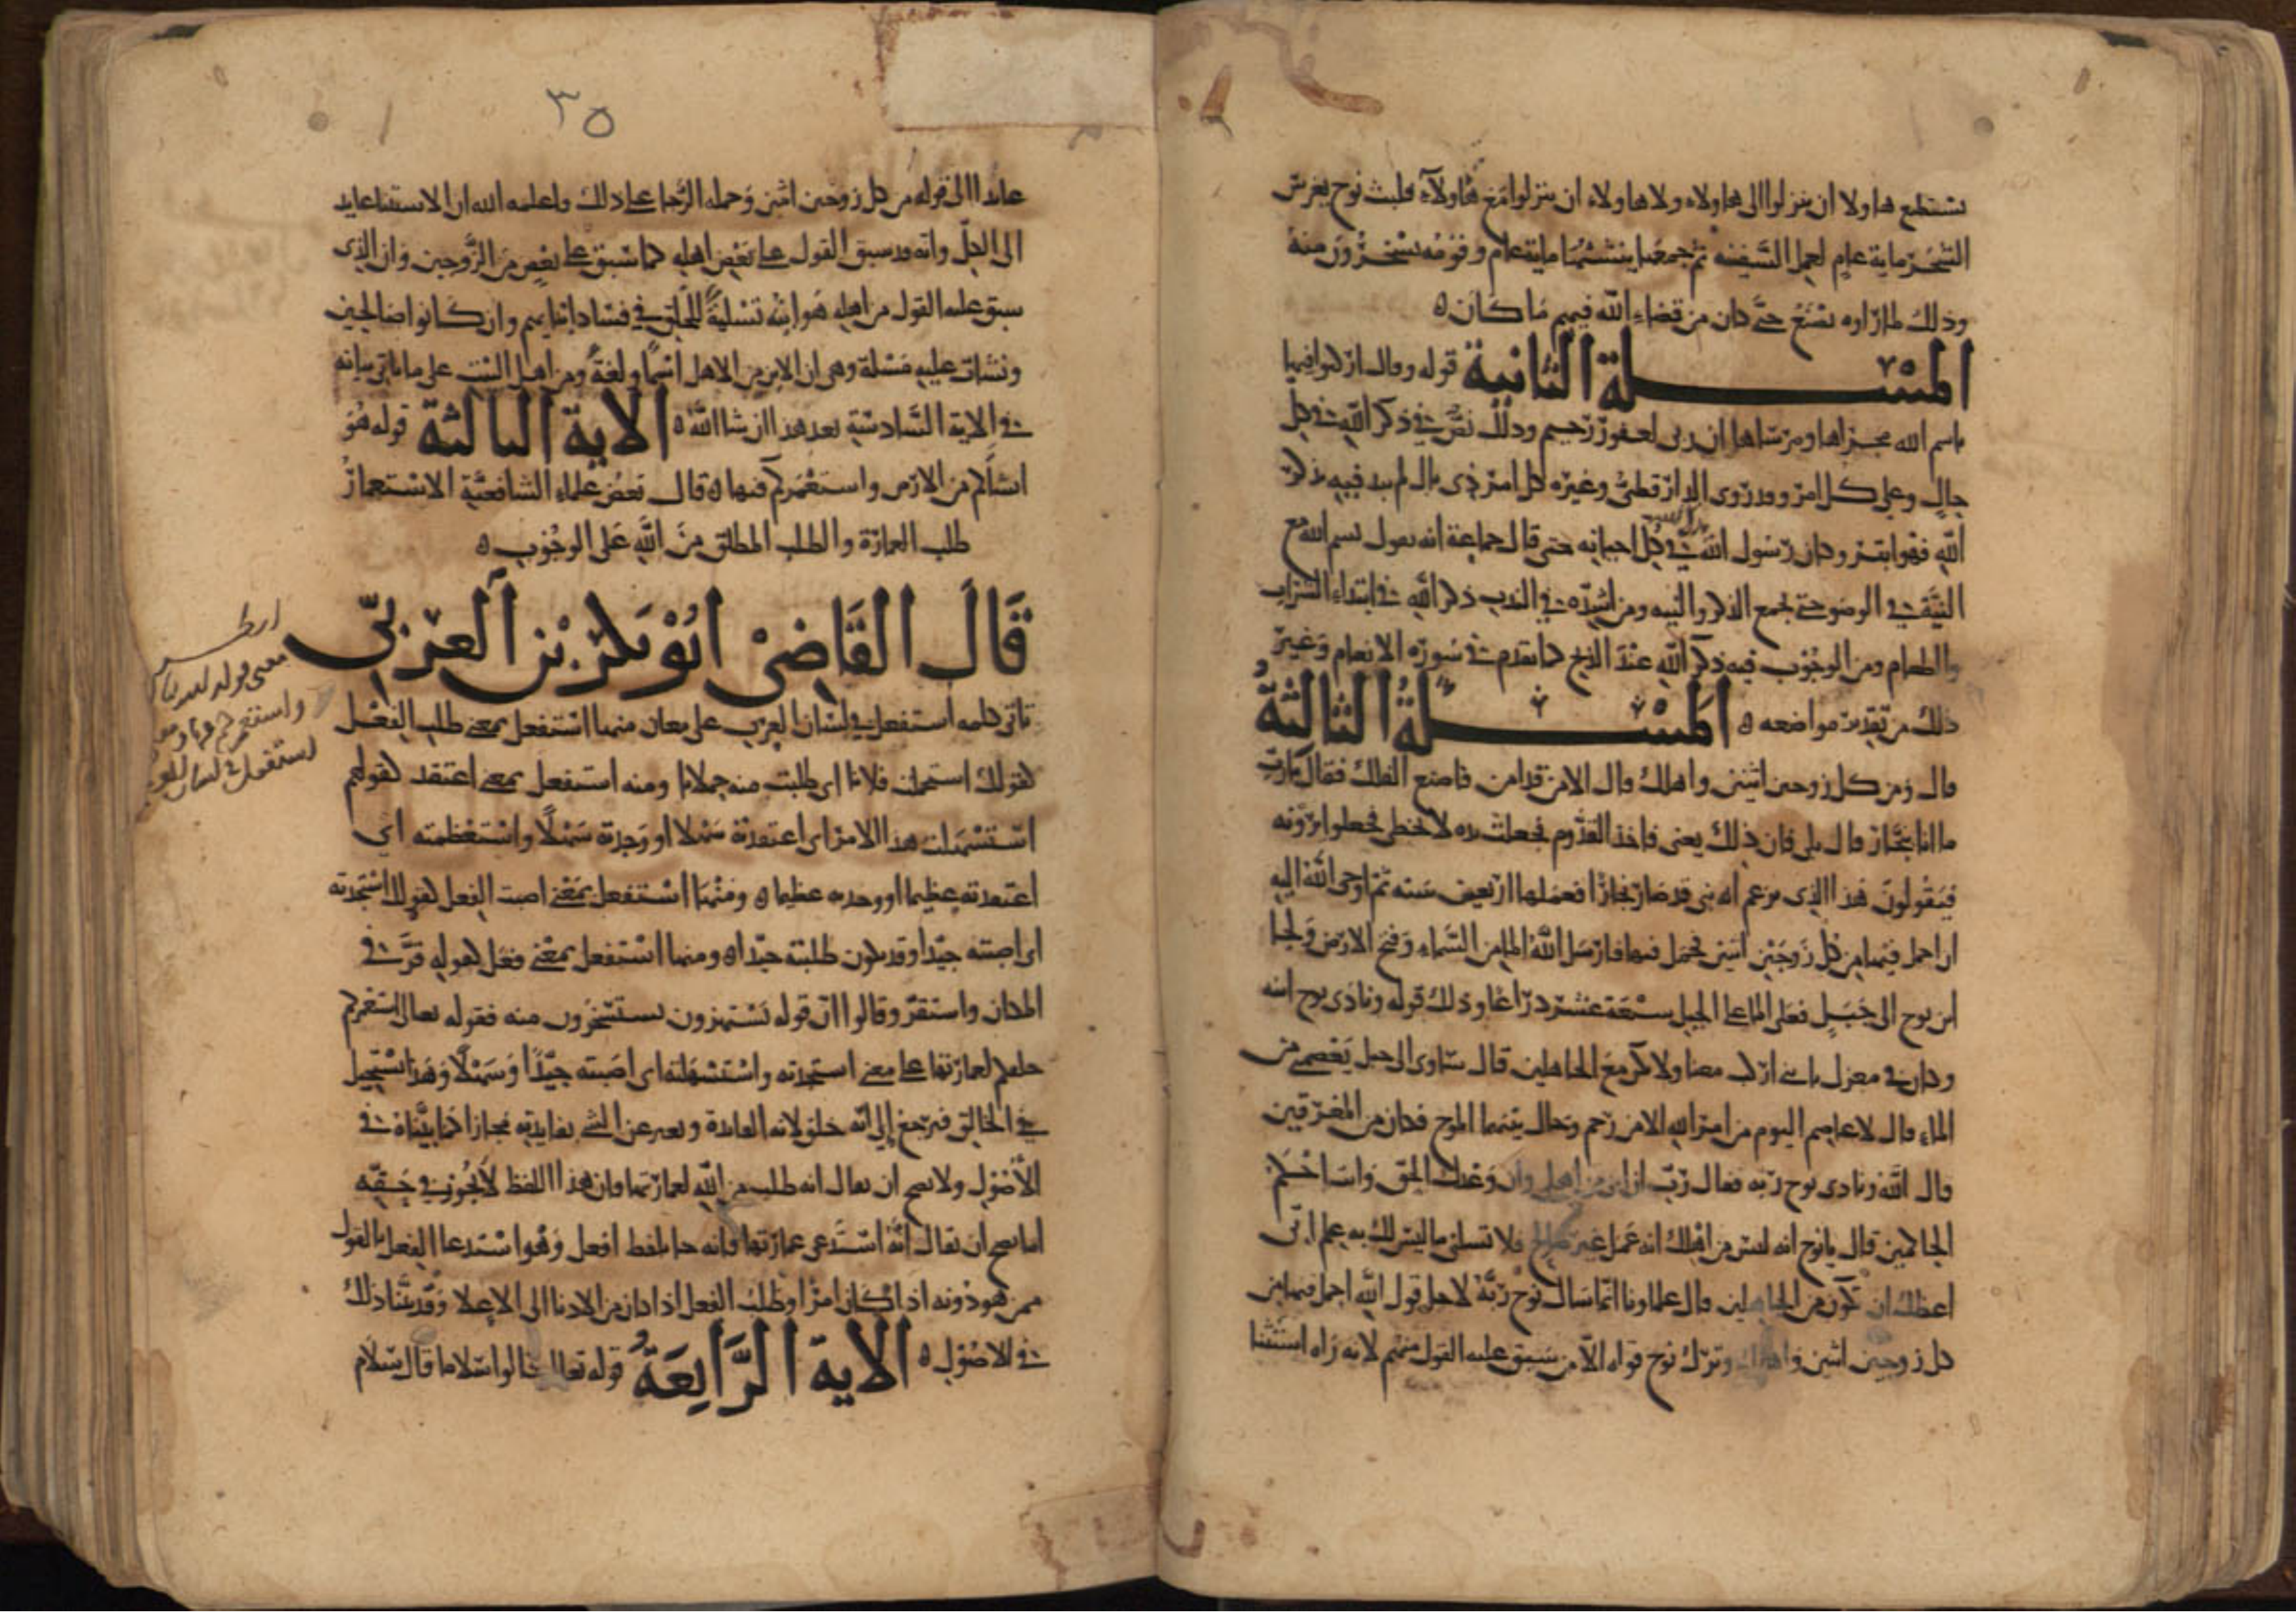 تستطيع هاولا ان ينزلوا الى هاولاء ولا هاولاء ان ينزلوا مع هاولاء فلبث نوح يغرس
الشجر ماية عام لعمل السفينة ثم جمعها ييبسها ماية عام وقومه يسخرون منه
وذلك لما راوه يصنع حتى كان من قضاء الله فيهم ما كان ه
المسئلة الثانية قوله وقال اركبوا فيها
باسم الله مجراها ومرساها ان ربى لغفور رحيم وذلك نص في ذكر الله في كل
حال وعلى كل امر وقد روى الدارقطنى وغيره كل امر ذى بال لم يبد فيه بذكر
الله فهو ابتر وكان رسول الله يذكر الله في كل احيانه حتى قال جماعة انه يقول بسم الله مع
النية في الوضو حتى يجمع الذكر والنية ومن اشده في الندب ذكر الله في ابتداء الشراب
والطعام ومن الوجوب فيه ذكر الله عند الذبح كما تقدم في سورة الانعام وغير
ذلك من تعديد مواضعه ه المسئلة الثالثة
قال ومن كل زوجين اثنين واهلك قال الامر قد امن فاصنع الفلك فقال يارب
ما انا بنجار قال بلى فان ذلك بعينى فاخذ القدوم فجعلت يده لا تخطى فجعلوا يمرون به
فيقولون هذا الذى يزعم انه نبى قد صار نجارا فعملها اربعين سنة ثم اوحى الله اليه
ان احمل فيها من كل زوجين اثنين فحمل فيها فارسل الله الما من السماء وفتح الارض ولجا
ابن نوح الى جبل فعلى الما على الجبل سبعة عشر دراعا وذلك قوله ونادى نوح ابنه
وكان في معزل يابنى اركب معنا ولا تكن مع الجاهلين قال ساوى الى جبل يعصمنى من
الماء قال لا عاصم اليوم من امر الله الا من رحم وحال بينهما الموج فكان من المغرقين
قال الله ونادى نوح ربه فقال رب ان ابنى من اهلى وان وعدك الحق وانت احكم
الحاكمين قال يانوح انه ليس من اهلك انه عمل غير صالح فلا تسلنى ما ليس لك به علم انى
اعظك ان تكون من الجاهلين قال علماونا انما سال نوح ربه لاجل قول الله احمل فيها من
كل زوجين اثنين واهلك وترك نوح قوله الا من سبق عليه القول منهم لانه راه استثنا
٣٥
عايدا الى قوله من كل زوجين اثنين وحمله الرجا على ذلك واعلمه الله ان الاستثنا عايد
الى الكل وانه قد سبق القول على بعض اهله كما سبق على بعض من الزوجين وان الذى
سبق عليه القول من اهله هو ابنه تسلية للخلق في فساد ابنايهم وان كانوا صالحين
ونشات عليه مسئلة وهى ان الابن من الاهل اسما ولغة ومن اهل البيت على ما ياتى بيانه
في الاية السادسة بعد هذا ان شا الله ه الاية الثالثة قوله هو
انشاكم من الارض واستعمركم فيها ه قال بعض علماء الشافعية الاستعمار
طلب العمارة والطلب المطلق من الله على الوجوب ه
قال القاضى ابو بكر بن العربى
تاتى كلمه استفعل في لسان العرب على معان منها استفعل بمعنى طلب الفعل
كقولك استحملت فلانا اى طلبت منه حملانا ومنه استفعل بمعنى اعتقد كقولهم
استسهلت هذا الامر اى اعتقدته سهلا او وجدته سهلا واستعظمته اى
اعتقدته عظيما او وجدته عظيما ه ومنها استفعل بمعنى اصبت الفعل كقولك استجدته
اى اصبته جيدا وقد يكون طلبته جيدا ه ومنها استفعل بمعنى فعل كقوله قر في
المكان واستقر وقالوا ان قوله تستهزون يستسخرون منه فقوله تعالى استعمركم
خلقكم لعمارتها على معنى استجدته واستسهلته اى اصبته جيدا وسهلا وهذا يستحيل
في الخالق فيرجع الى انه خلق لانه الفايدة ويعبر عن الشى بفايدته مجازا كما بيناه في
الاصول ولا يصح ان يقال انه طلب من الله لعمارتها فان هذا اللفظ لا يجوز في حقه
اما يصح ان يقال انه استدعى عمارتها فانه جا بلفظ افعل وهو استدعا الفعل بالقول
ممن هو دونه اذا كان امرا وطلب الفعل اذا كان من الادنا الى الاعلا وقد بينا ذلك
في الاصول ه الاية الرابعة قوله تعالى قالوا سلاما قال سلام
معنى قوله
واستعمركم فيها ومعنى
استفعل في لسان العرب